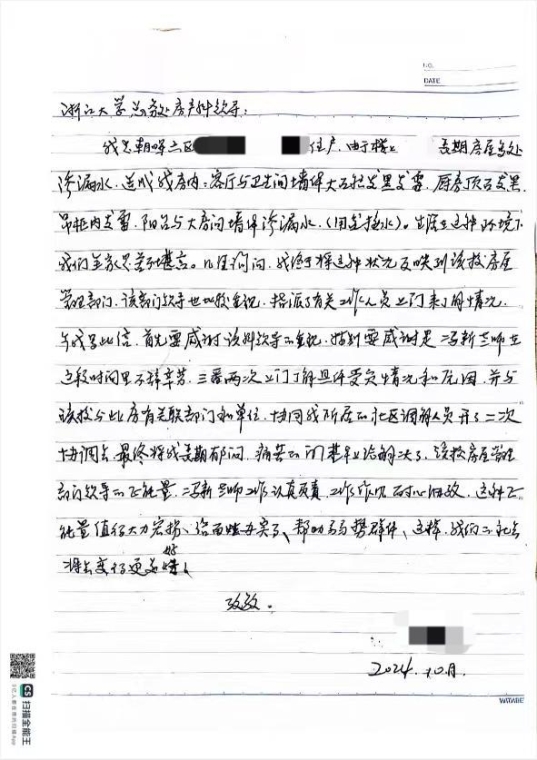 NO.
DATE
浙江大学总务处房产科领导:
我是朝晖六区 住户,由于楼上 长期房屋多处
渗漏水,造成我房内:客厅与卫生间墙体大面积发黑发霉,厨房顶面发黑
吊柜内发霉,阳台与大房间墙体渗漏水,(用盆接水)。生活在这种环境下
我们全家苦不堪言。几经询问,我终于将这种状况反映到该校房屋
管理部门,该部门领导也很重视,指派了有关工作人员上门来了解情况,
今我写此信,首先要感谢该科领导的重视,特别要感谢是冯新老师在
这段时间里不辞辛苦,三番两次上门了解具体受灾情况和原因,并与
该校与此房有关联部门和单位,协同我所居的社区调解人员开了二次
协调会,最终将我长期郁闷,痛苦的 给解决了,该校房屋管理
部门领导的正能量,冯新老师工作认真负责,工作作风 耐心细致,这种正
能量值得大力宏扬,给百姓办实事,帮助弱势群体,这样,我们的社会
将会变得更美好!
致敬。
2024.10月.
CS 扫描全能王
3亿人都在用的扫描App